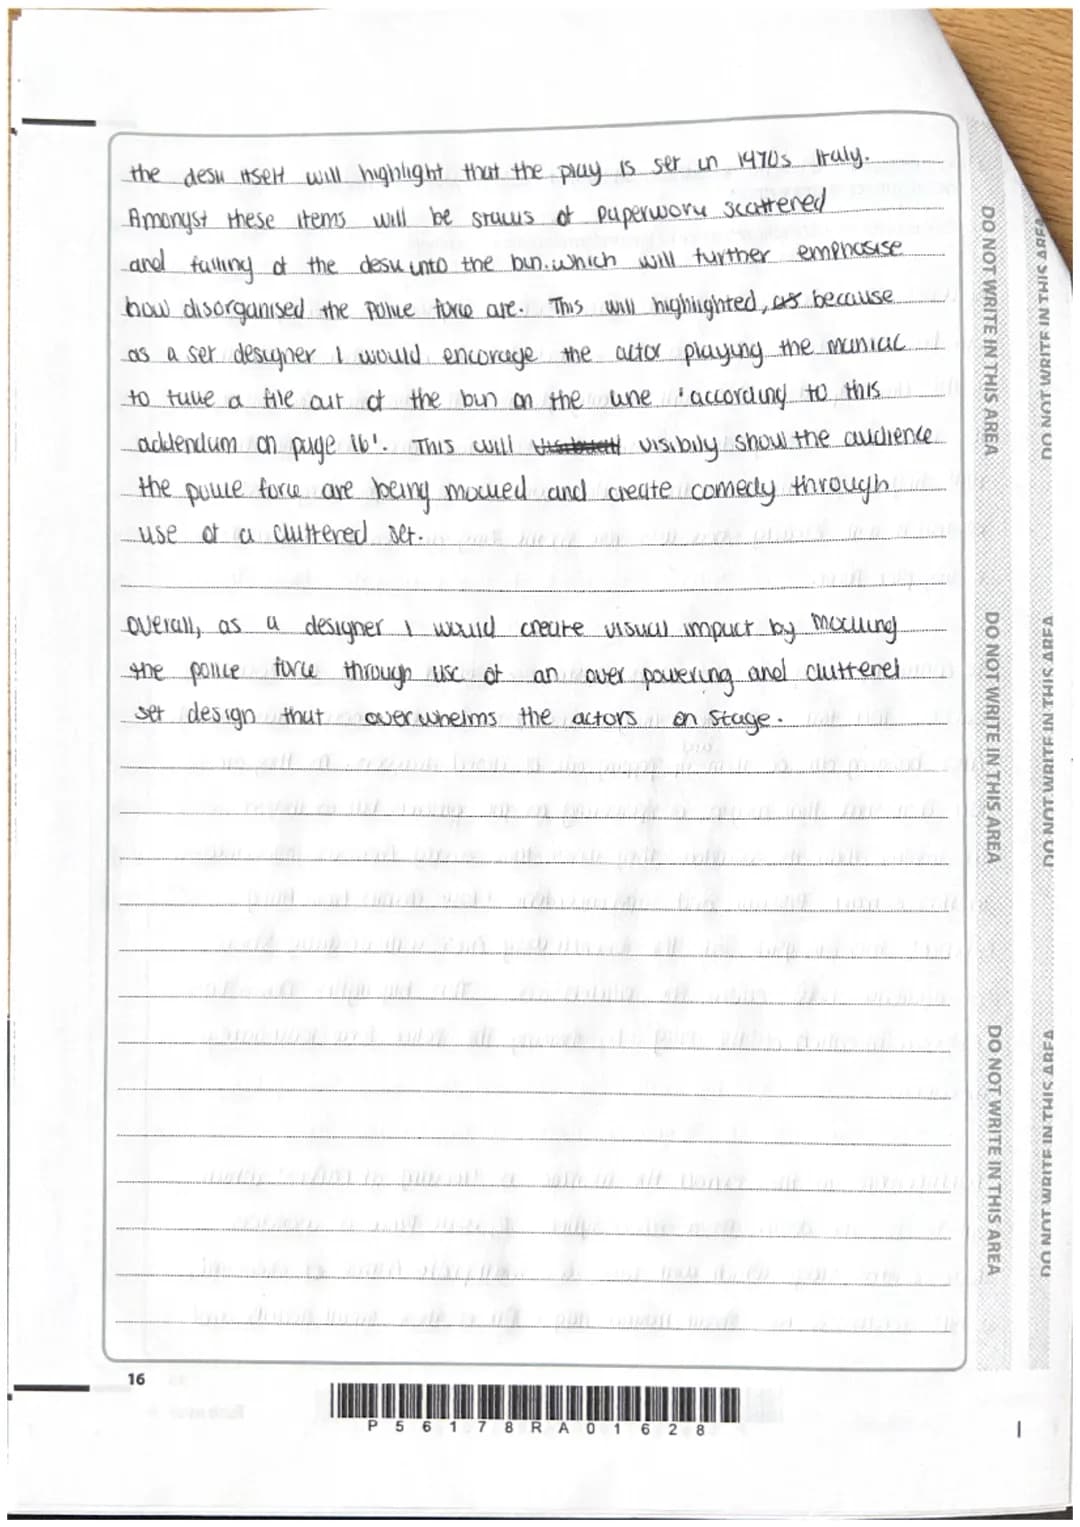 the desk itself will highlight that the play is set in 1970s Italy.
Amongst these items will be stacks of paperwork scattered
and falling of the desk into the bin. which will further emphasise
how disorganised the police force are. This will highlighted, as because
as a set designer I would encorage the actor playing the maniac
to take a file out of the bin on the line 'according to this
addendum on page 16'. This will visibily show the audience
the police force are being mocked and create comedy through
use of a cluttered set.
overall, as a designer I would create visual impact by mocking
the police force through use of an over powering and cluttered
set design that overwhelms the actors on stage.
DO NOT WRITE IN THIS AREA
DO NOT WRITE IN THIS AREA
DO NOT WRITE IN THIS AREA
DO NOT WRITE IN THIS AREA
DO NOT WRITE IN THIS AREA
DO NOT WRITE IN THIS AREA
16
P56178RA01628